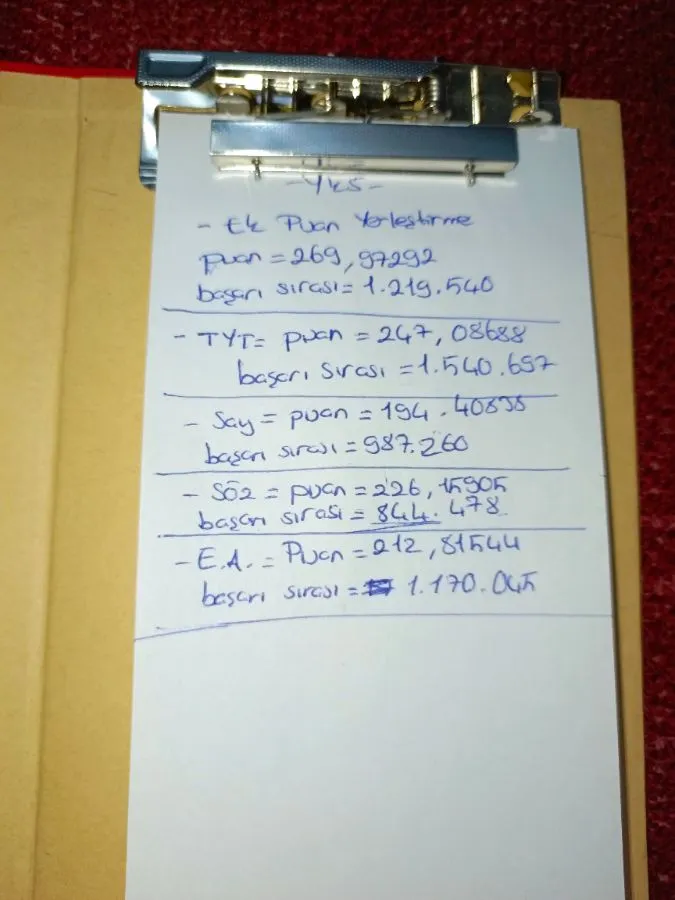 - YKS -
- Ek Puan Yerleştirme
puan = 269,97292
başarı sırası = 1.219.540
- TYT = puan = 247,08688
başarı sırası = 1.540.697
- Say = puan = 194.40838
başarı sırası = 987.260
- SÖZ = puan = 226,15905
başarı sırası = 844.478
- E.A. = Puan = 212,81544
başarı sırası = 1.170.045